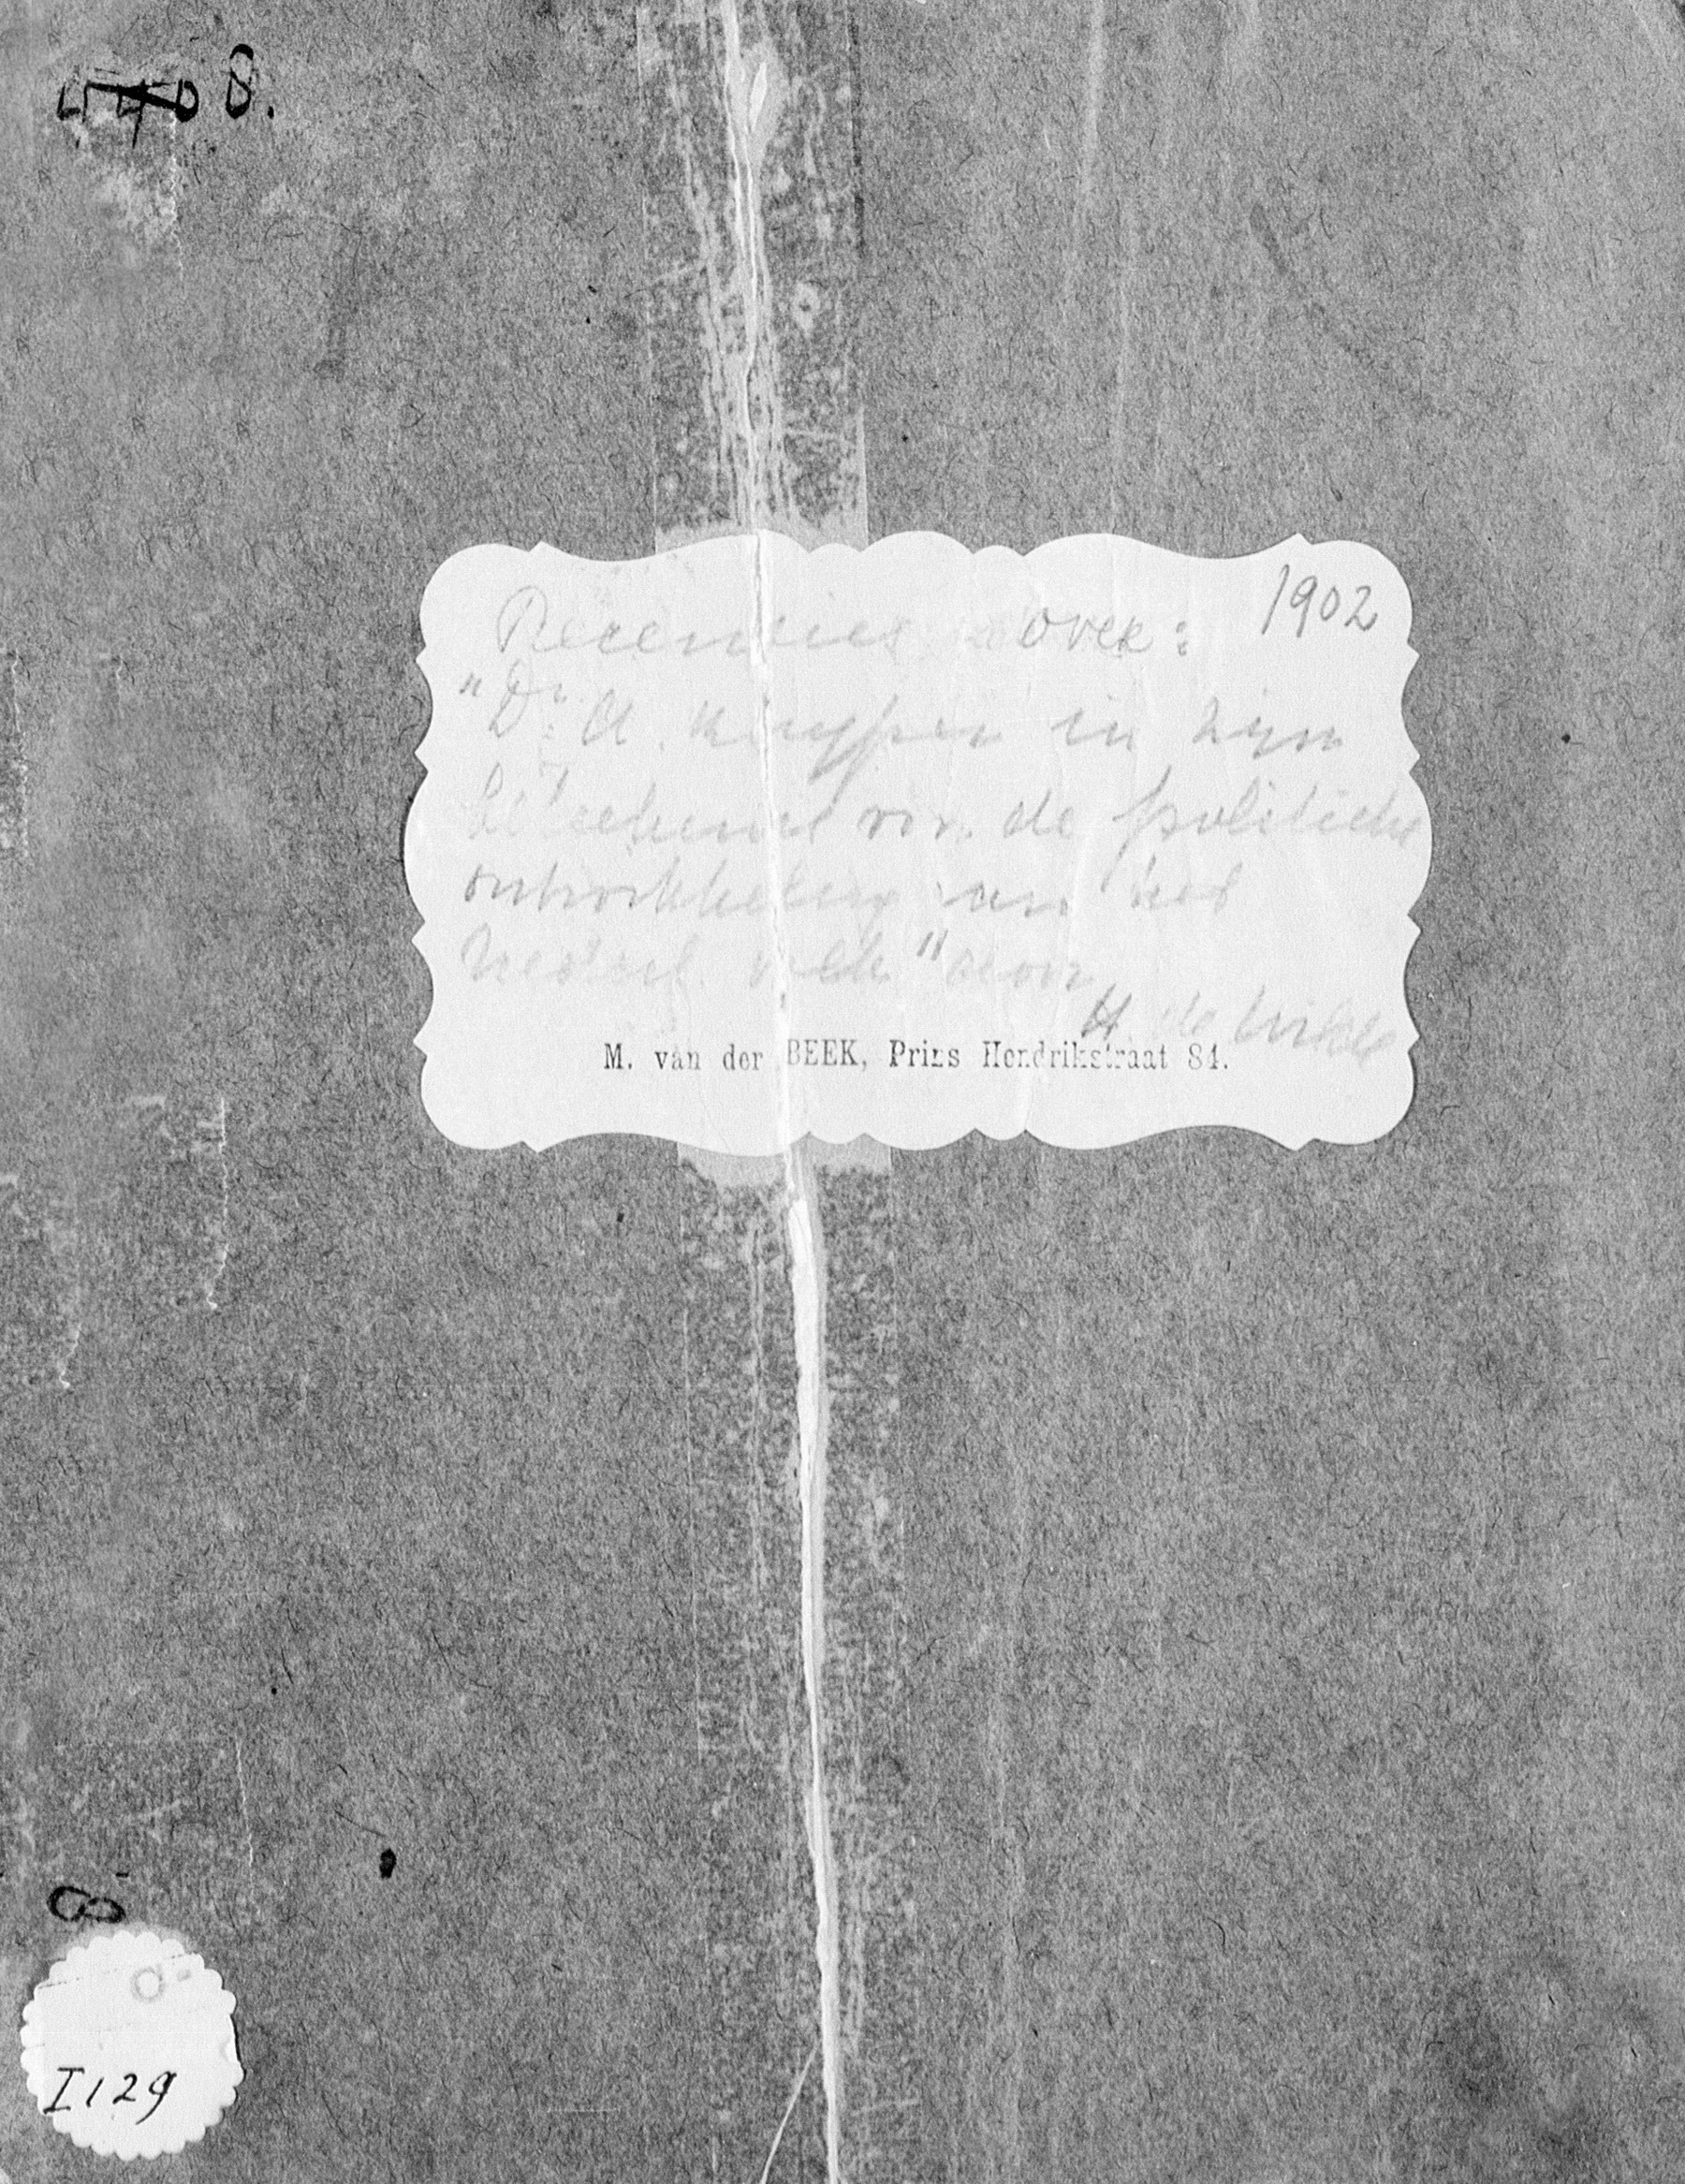 8.
1902
Recensies over:
"Dr. A. Kuyper in zijn
beteekenis voor de politieke
ontwikkeling van het
Nederl. volk" door
H. de Wilde
M. van der BEEK, Prins Hendrikstraat 84.
8
I 129